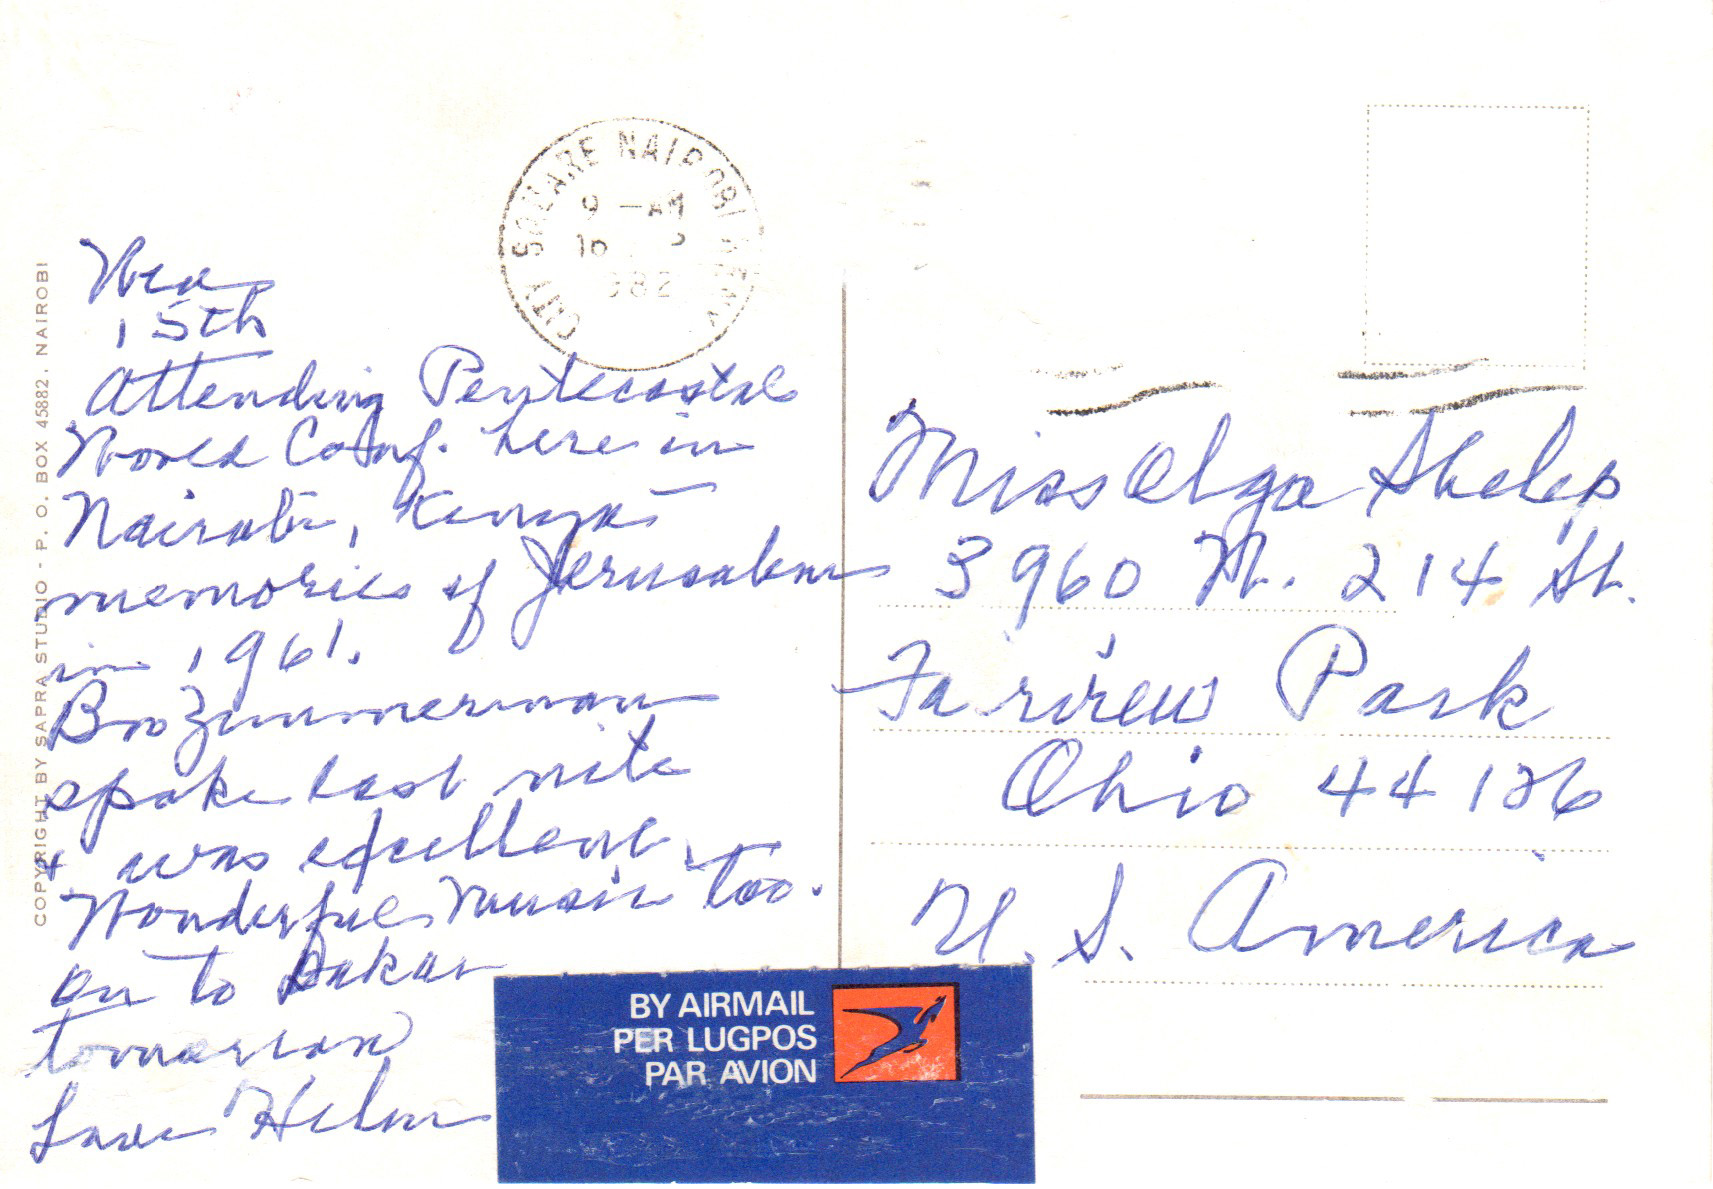 COPYRIGHT BY SAPRA STUDIO - P. O. BOX 45882, NAIROBI
CITY SQUARE NAIROBI
9 - AM
982
Wed
15th
Attending Pentecostal
World Conf. here in
Nairobi, Kenya
memories of Jerusalem
in 1961.
Bro Zimmerman
spoke last nite
+ was excellent.
Wonderful Music too.
On to Dakar
tomorrow
Love Helen
Miss Olga Shelep
3960 W. 214 St.
Fairview Park
Ohio 44126
U. S. America
BY AIRMAIL
PER LUGPOS
PAR AVION